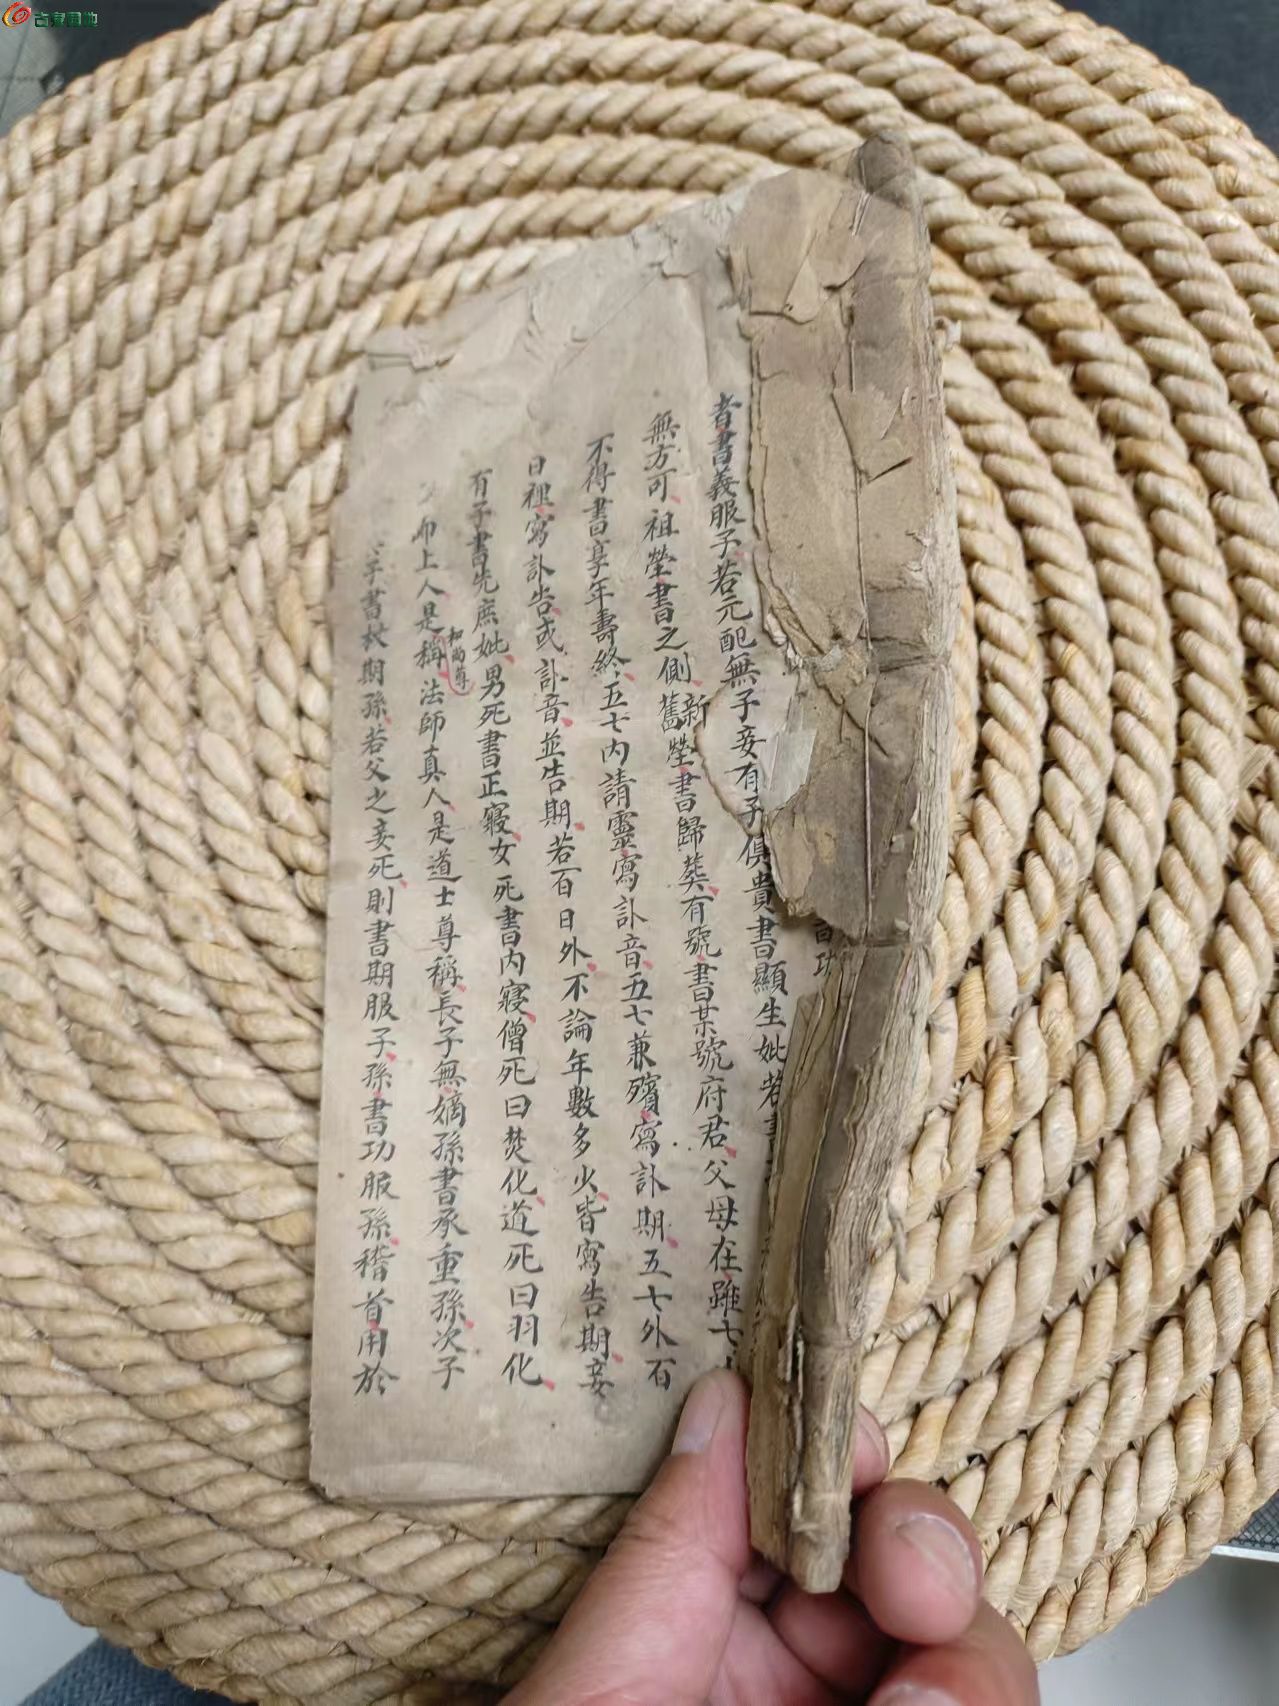 古泉园地
者書義服子若元配無子妾有子俱貴書顯生妣若
無方可祖塋書之側新舊塋書歸葬有號書某號府君父母在雖七
不得書享年壽終五七內請靈寫訃音五七兼殯寫訃期五七外百
日裡寫訃告或訃音並告期若百日外不論年數多少皆寫告期妾
有子書先庶妣男死書正寢女死書內寢僧死曰焚化道死曰羽化
上人是稱和尚尊法師真人是道士尊稱長子無嫡孫書承重孫次子
子書杖期孫若父之妾死則書期服子孫書功服孫稽首用於